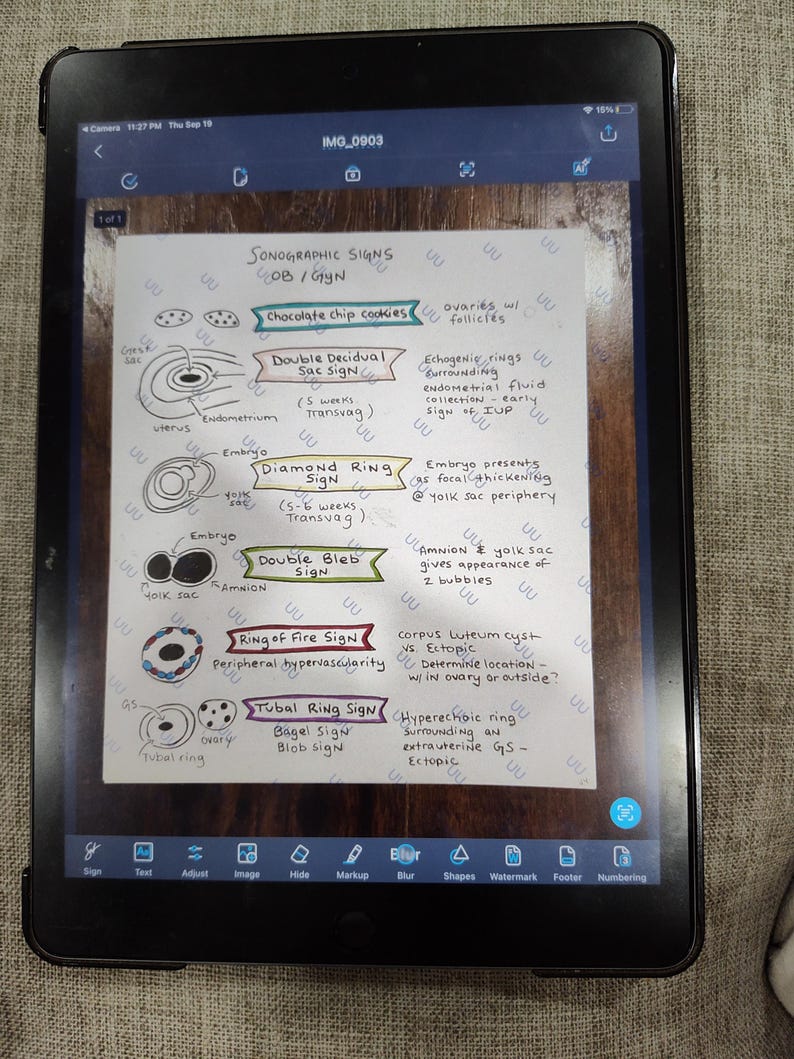 Camera 11:27 PM Thu Sep 19
15%
IMG_0903
AI
1 of 1
SONOGRAPHIC SIGNS
OB / GYN
Chocolate chip cookies
ovaries w/
follicles
Gest
sac
Double Decidual
Sac Sign
(5 weeks
Transvag)
Echogenic rings
surrounding
endometrial fluid
collection - early
sign of IUP
Endometrium
uterus
Embryo
Yolk
sac
Diamond Ring
Sign
(5-6 weeks
Transvag)
Embryo presents
as focal thickening
@ yolk sac periphery
Embryo
Yolk sac
Amnion
Double Bleb
Sign
Amnion & yolk sac
gives appearance of
2 bubbles
Ring of Fire Sign
Peripheral hypervascularity
Corpus Luteum cyst
vs. Ectopic
Determine location -
w/in ovary or outside?
GS
ovary
Tubal ring
Tubal Ring Sign
Bagel Sign
Blob sign
Hyperechoic ring
surrounding an
extrauterine GS -
Ectopic
Sign Text Adjust Image Hide Markup Blur Shapes Watermark Footer Numbering